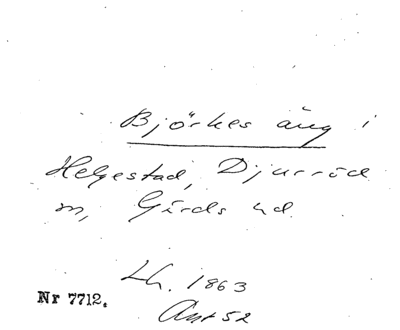 Björkes äng i
Helgestad, Djurröd
m, Gärds hd.
Lh. 1863
Nr 7712.
Ant 52